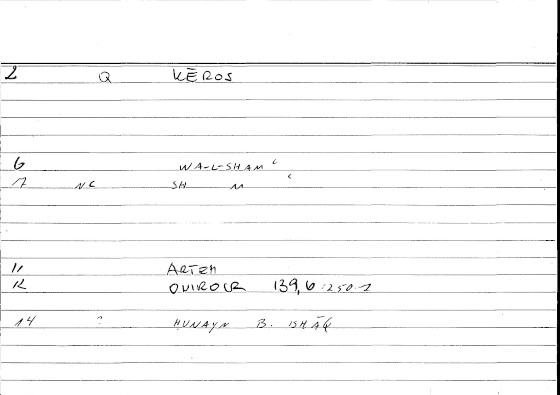 2 Q KĒROS
6 WA-L-SHAMʿ
7 NC SH M ʿ
11 ARTEM
12 139,6:250.2
14 ? HUNAYN B. ISHĀQ